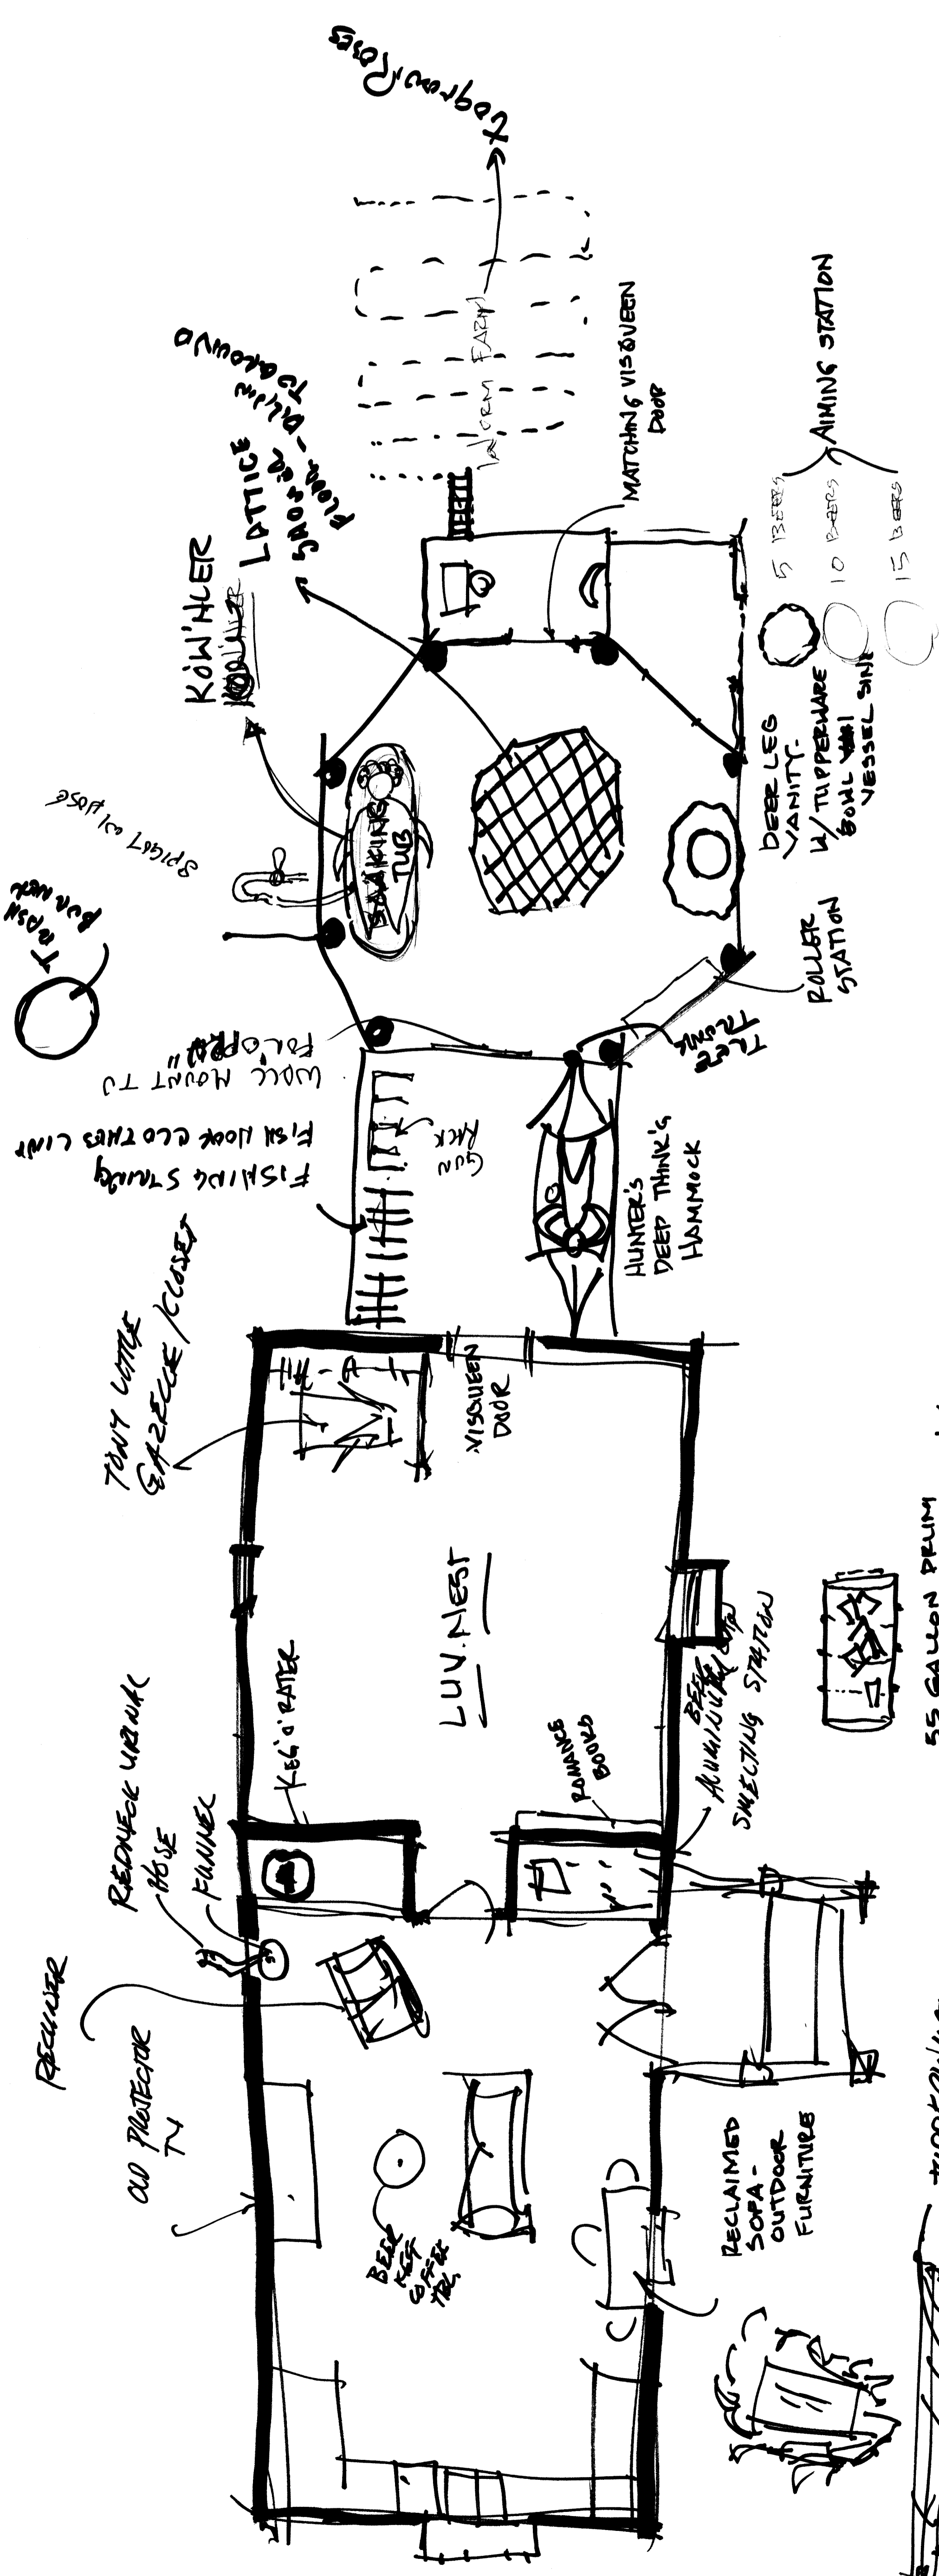 to grow Roses
WORM FARM
MATCHING VISQUEEN
DOOR
AIMING STATION
5 BEERS
10 BEERS
15 BEERS
LATTICE
FLOOR - DRAIN
TO GROUND
KÖW'HLER
SPIGOT W/ HOSE
TRASH
BURNER
SOAKING
TUB
DEER LEG
VANITY -
W/ TUPPERWARE
BOWL
VESSEL SINK
ROLLER
STATION
TREE
TRUNK
WALL MOUNT TV
FOR "OPRA"
FISHING STRING
FISH HOOK CLOTHES LINE
GUN
RACK
HUNTER'S
DEEP THINK'G
HAMMOCK
TONY LITTLE
GAZELLE / CLOSET
VISQUEEN
DOOR
LUV.NEST
KEG'O'RATER
ROMANCE
BOOKS
BEER CAN
ALUMINUM
SMELTING STATION
55 GALLON DRUM
REDNECK URINAL
HOSE
FUNNEL
RECLINER
OLD PROJECTOR
TV
BEER
KEG
COFFEE
TBL.
RECLAIMED
SOFA -
OUTDOOR
FURNITURE